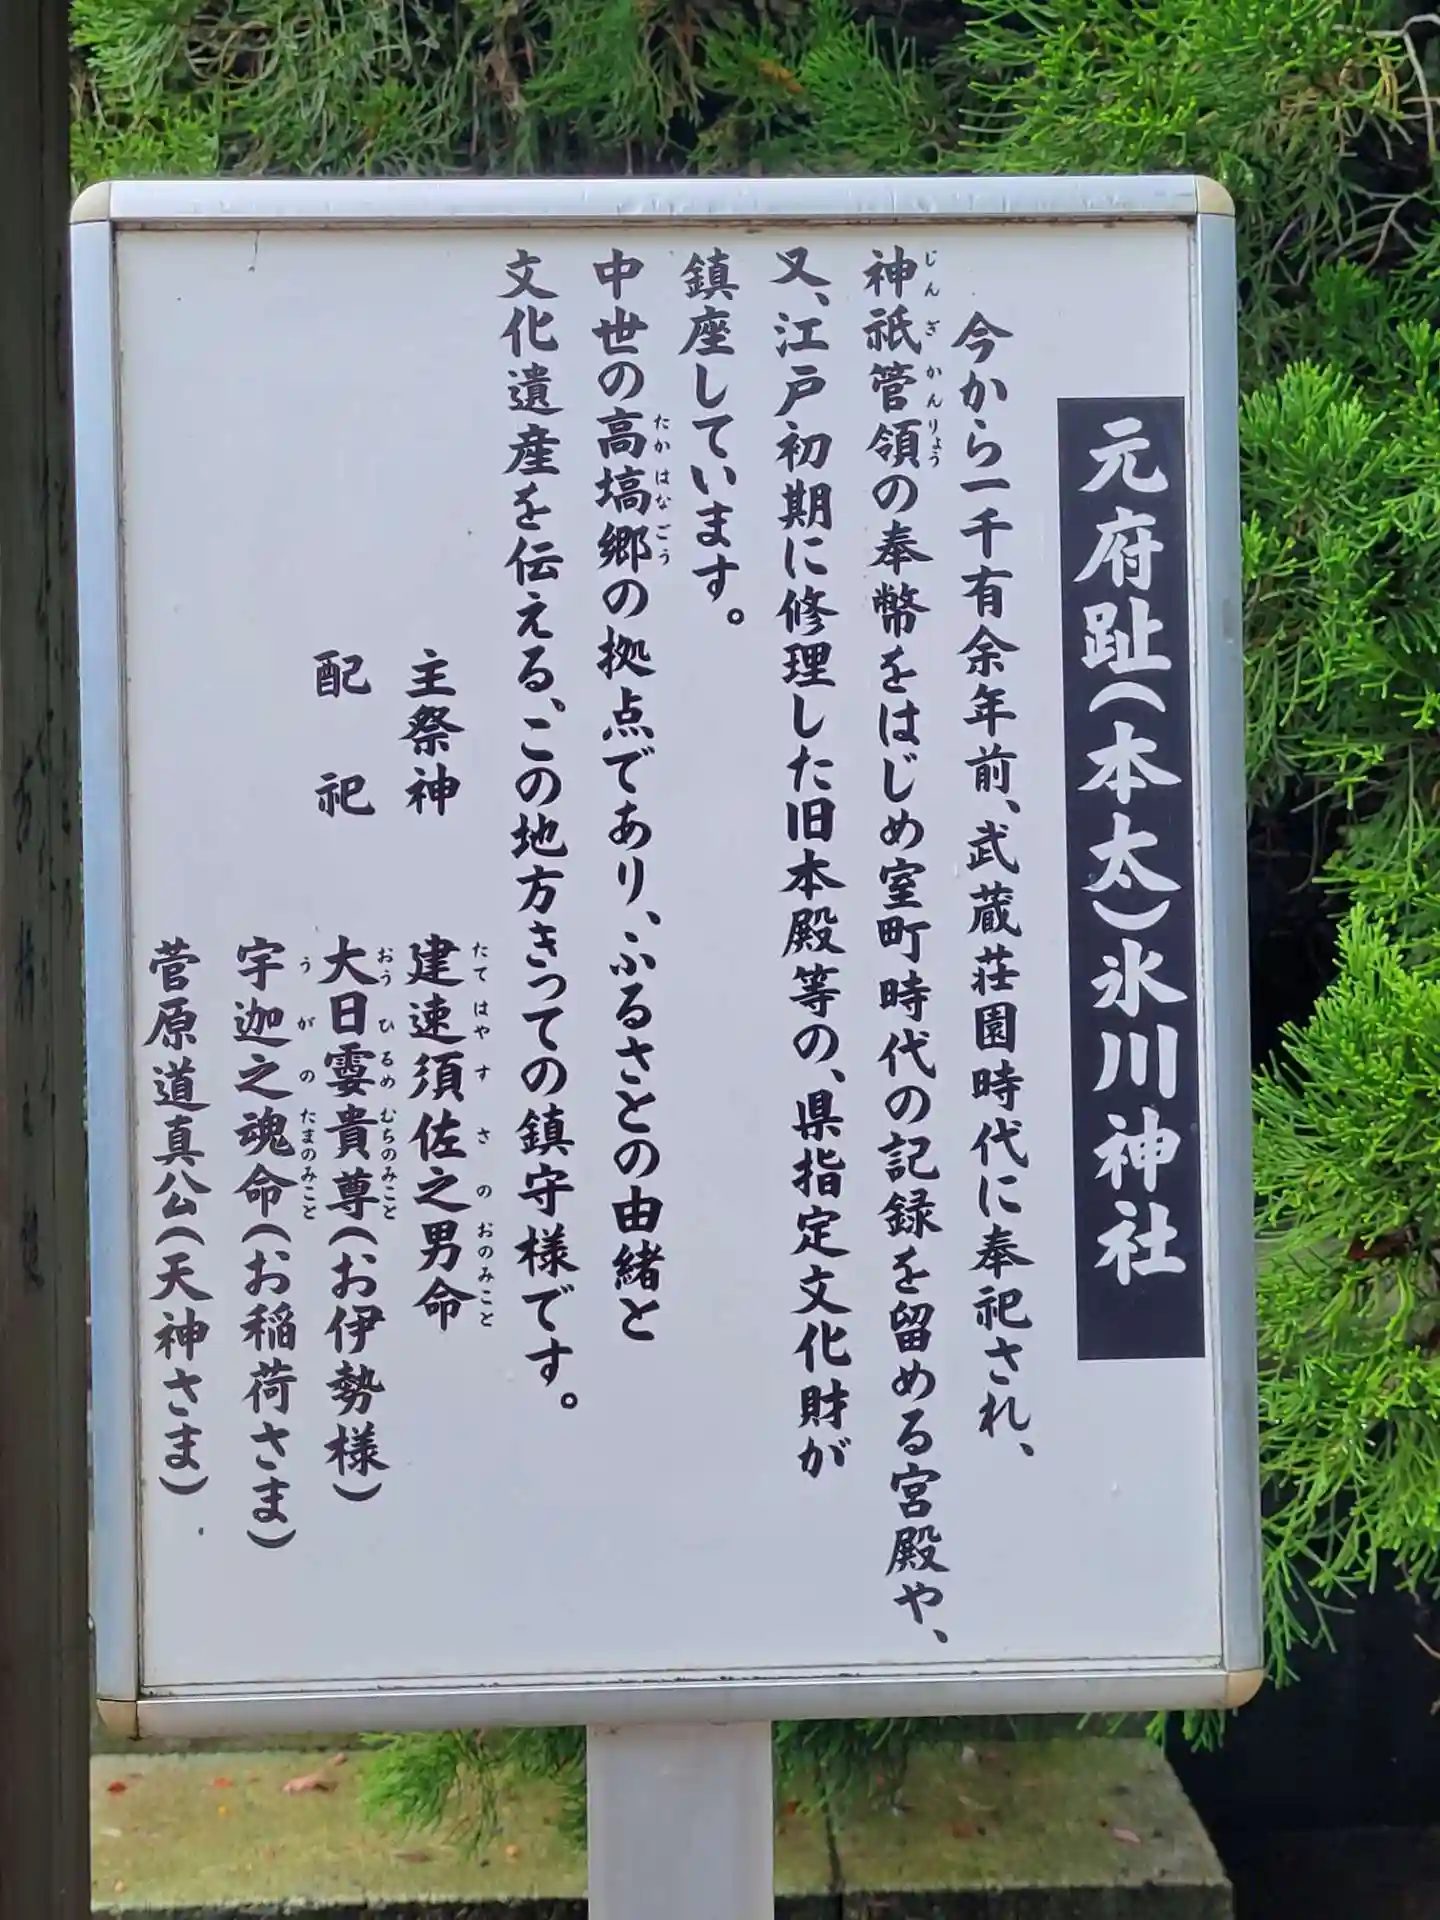 元府趾(本太)氷川神社
今から一千有余年前、武蔵荘園時代に奉祀され、
神祇管領の奉幣をはじめ室町時代の記録を留める宮殿や、
じんぎかんりょう
又、江戸初期に修理した旧本殿等の、県指定文化財が
鎮座しています。
中世の高塙郷の拠点であり、ふるさとの由緒と
たかはなごう
文化遺産を伝える、この地方きっての鎮守様です。
主祭神 建速須佐之男命
たてはやすさのおのみこと
配祀 大日孁貴尊(お伊勢様)
おうひるめむちのみこと
宇迦之魂命(お稲荷さま)
うがのたまのみこと
菅原道真公(天神さま)